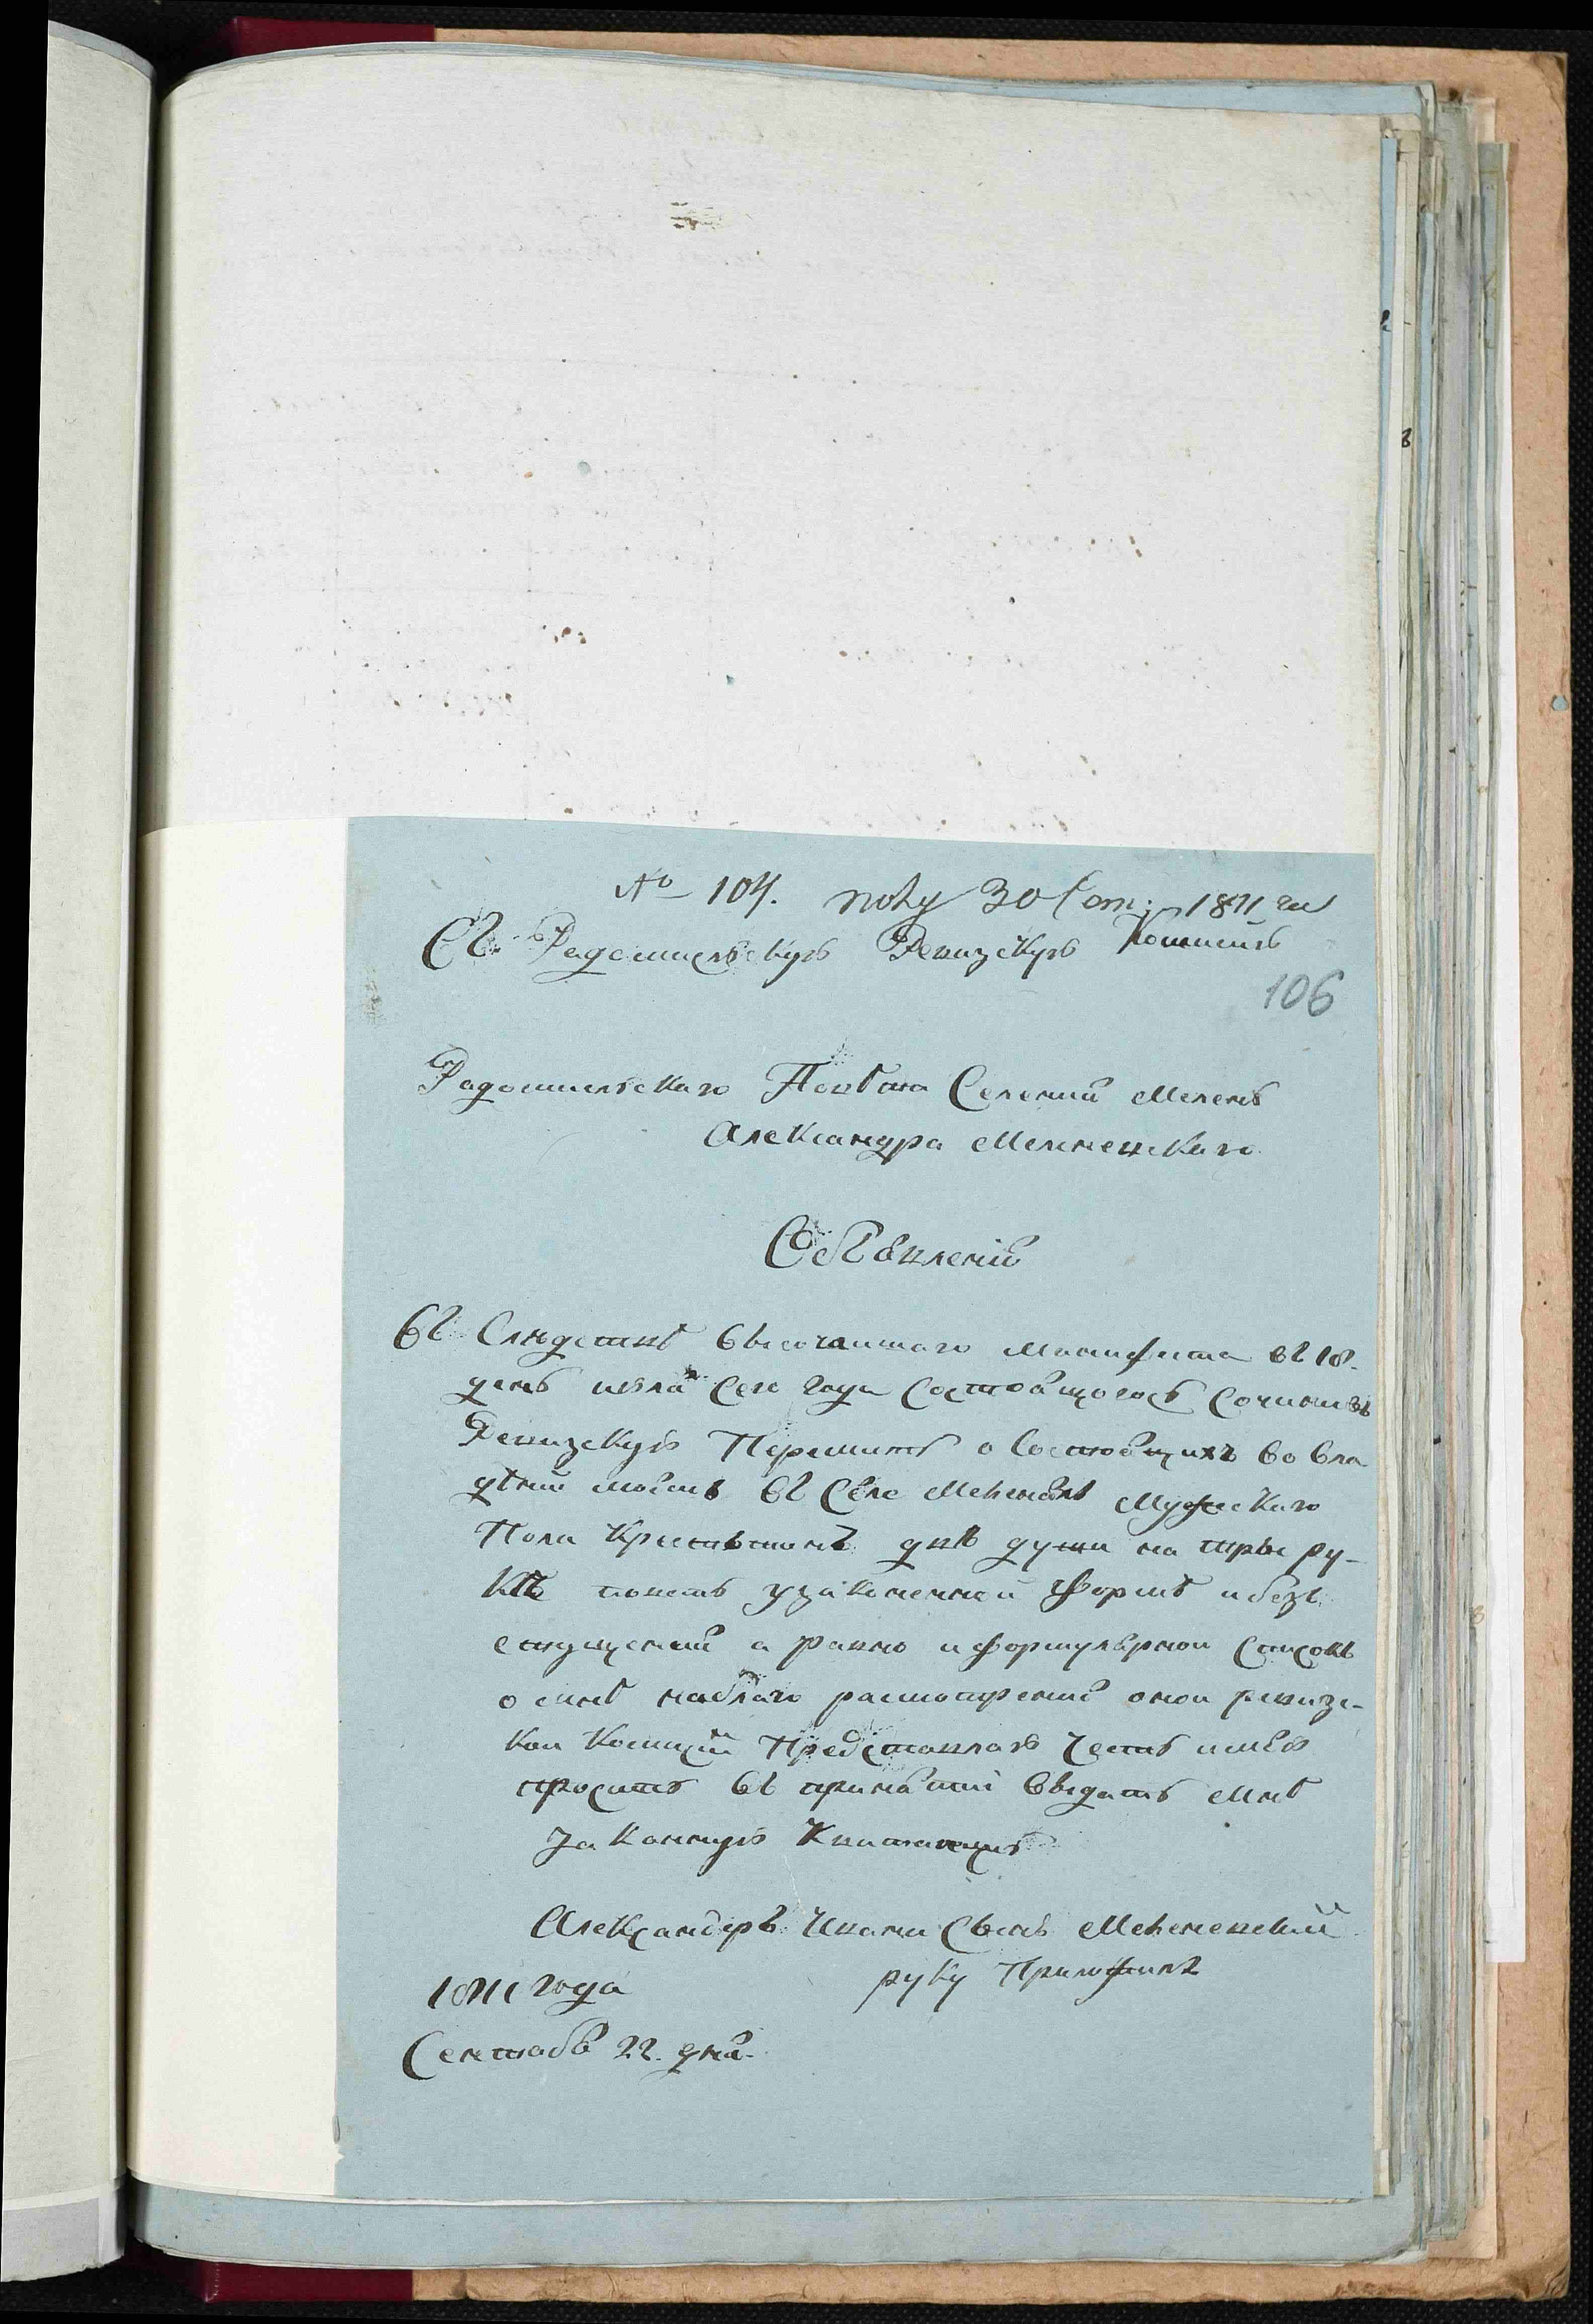 № 104. полу 30 Сент: 1811 год
Въ Радомисльскую Ревизскую Комисiю
106
Радомисльскаго Повѣта Селенiя Мелень
Александра Меленевскаго
Обьявленiе
Въ Слѣдствѣ высочаишаго Манифеста въ 18.
день маiя Сего года Состоявщогось Сочинивъ
Ревизскую Перепись о Состоящихъ во вла
дѣнiи моемъ въ Селе Меленяхъ Мужескаго
Пола Крестьянъ двѣ души на тры ру-
кѣ
узаконенной формѣ и безъ
а равно и формулярнои Списокъ
о мнѣ на благо расмотренiе онои ревизс-
кои Комицiи Представлаю Честь имѣю
просить въ принятiи Выдать Мнѣ
Законную Квитанцiю
Александеръ Ивана Сынъ Меленевскiй
руку Приложилъ
1811 года
Сентабѣ 22. дня.